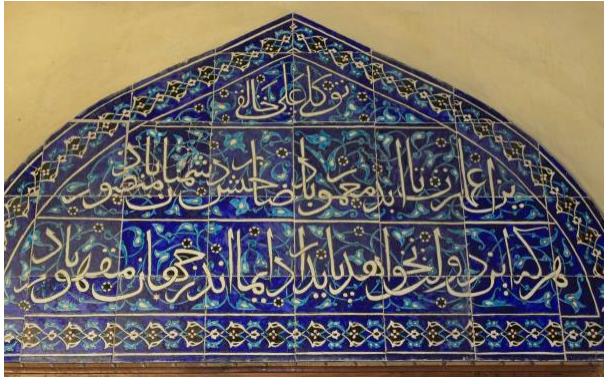 توکلا علی خالقی
این عمارت تا ابد معمور باد صاحبش بر دشمنان منصور باد
هر که این دولت نخواهد پایدار دایما اندر جهان مقهور باد